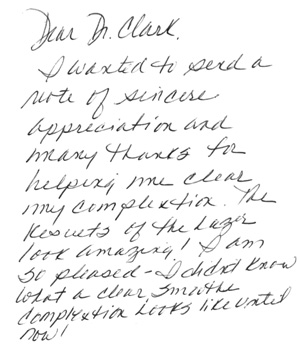 Dear Dr. Clark,
I wanted to send a
note of sincere
appreciation and
many thanks for
helping me clear
my complextion. The
Results of the Lazer
look amazing! I am
so pleased - I didn't know
what a clear, smoothe
complextion looks like until
now!